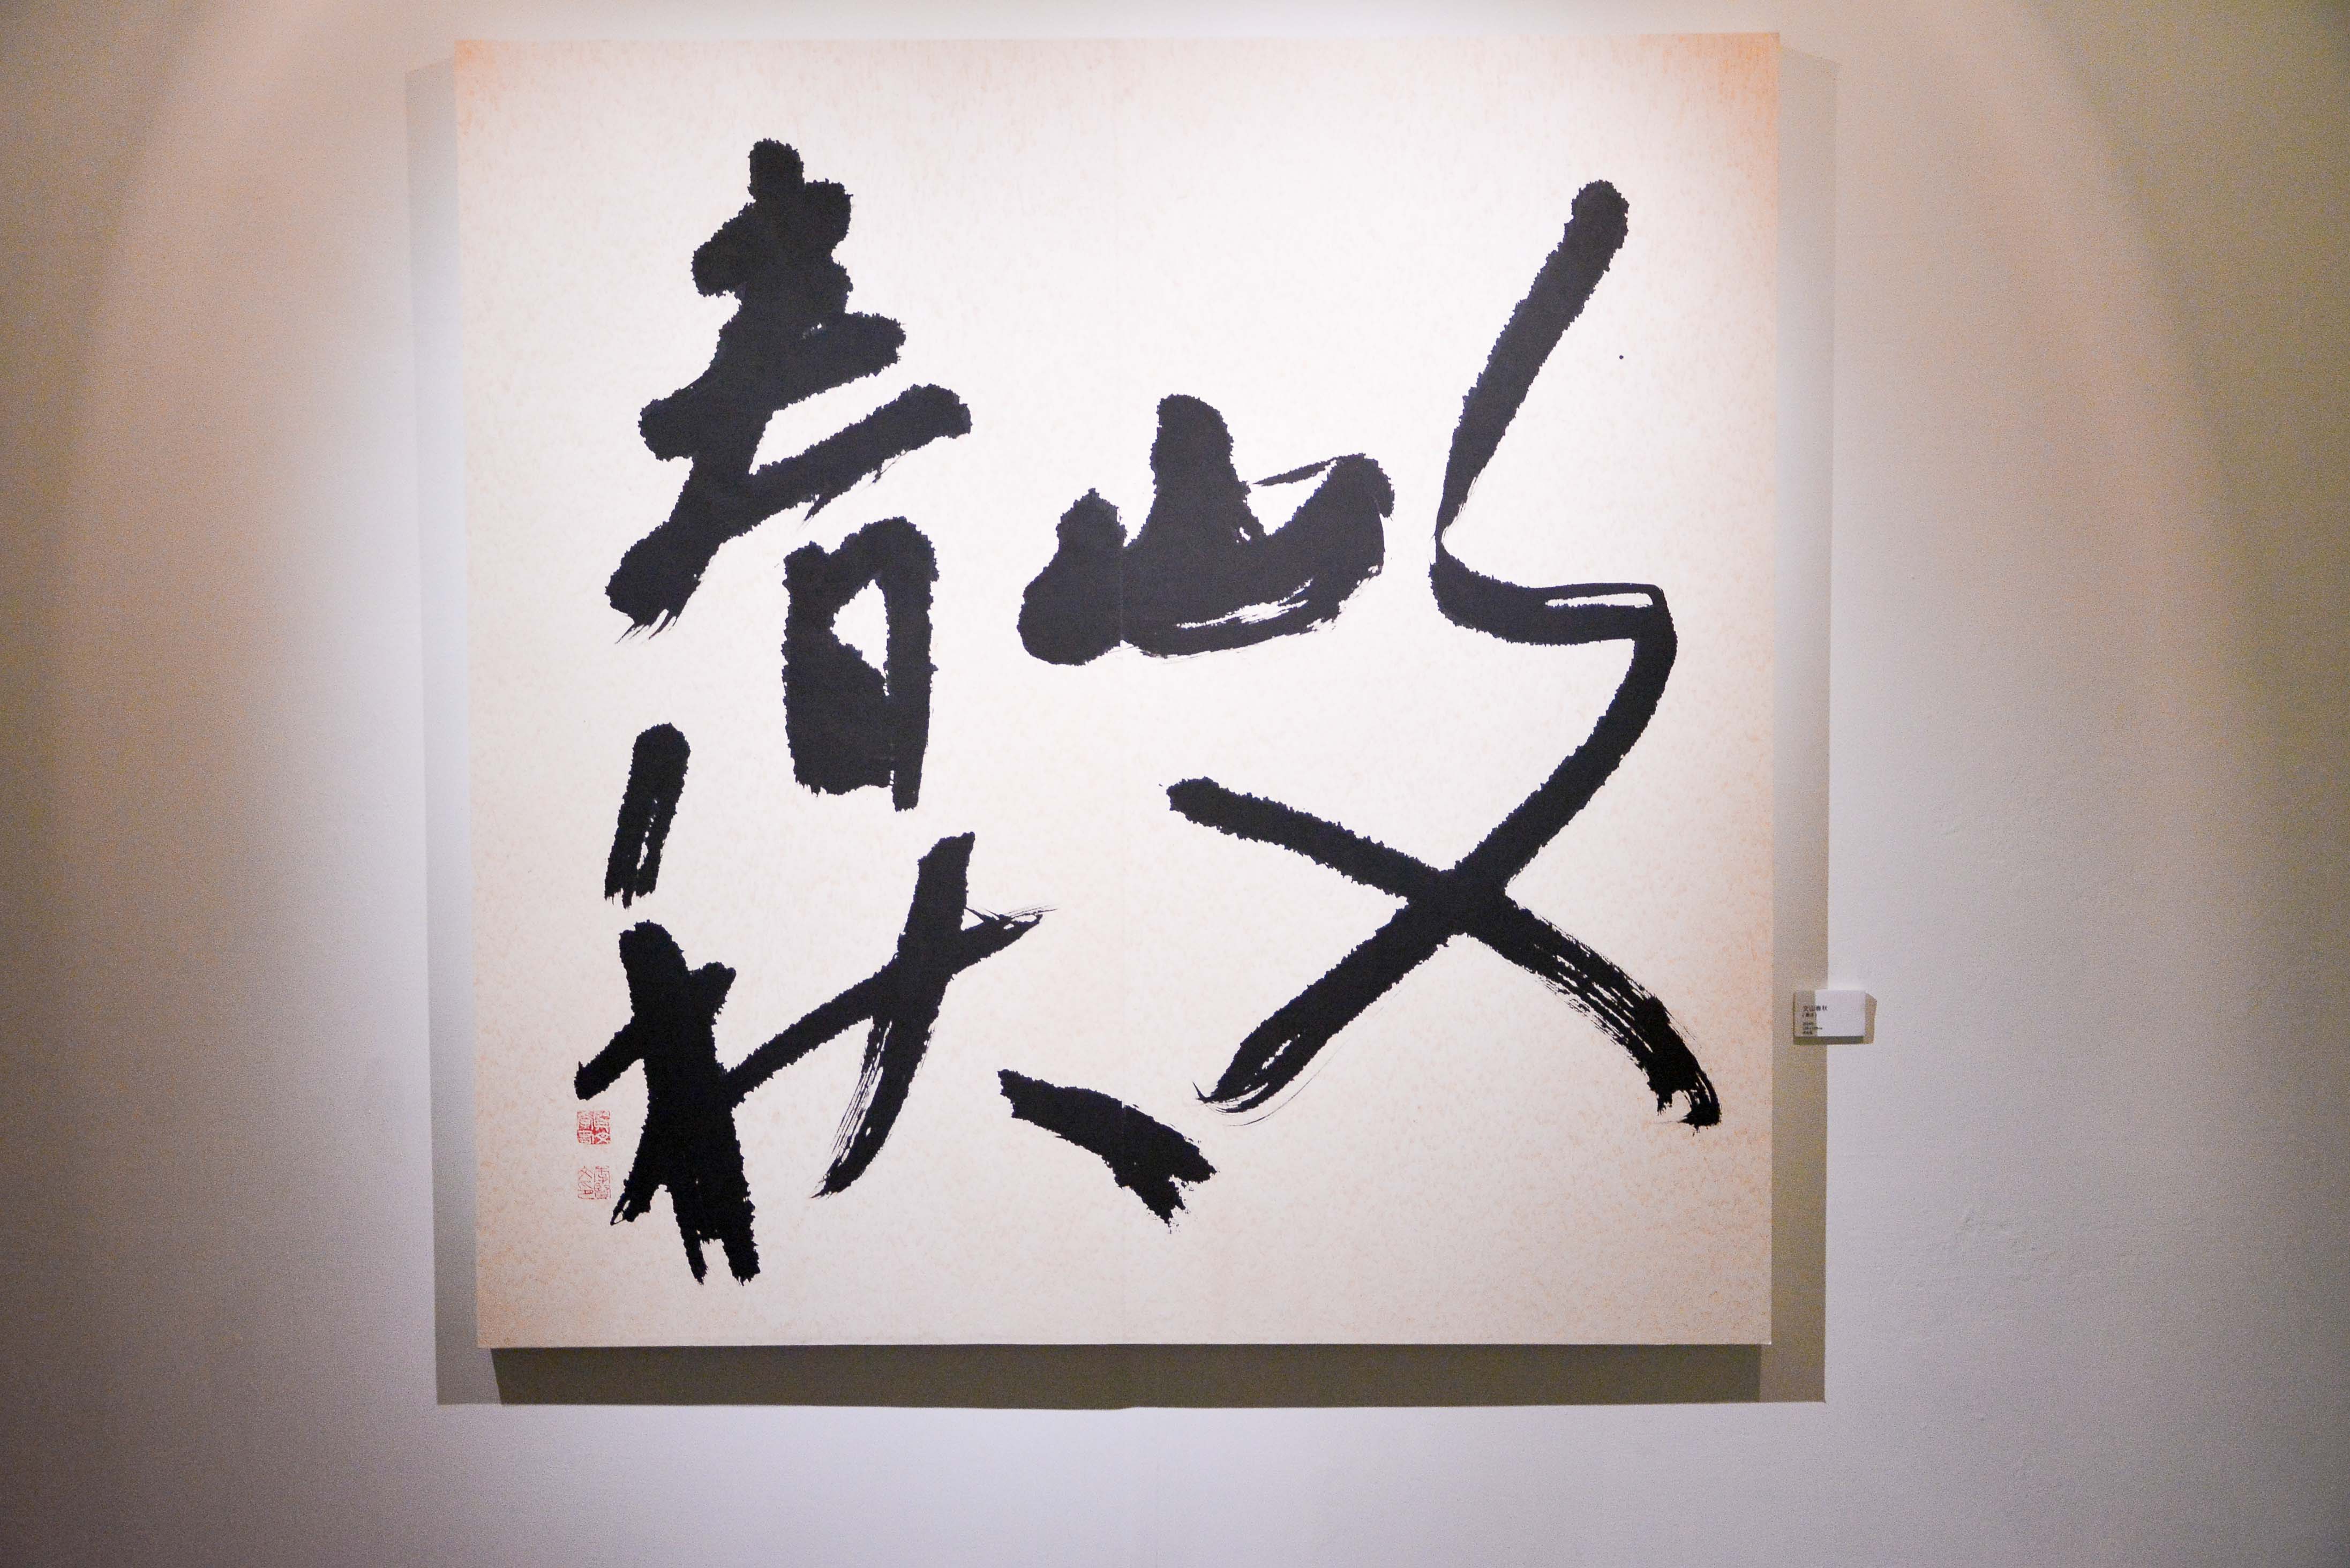 文山
春秋
文山春秋